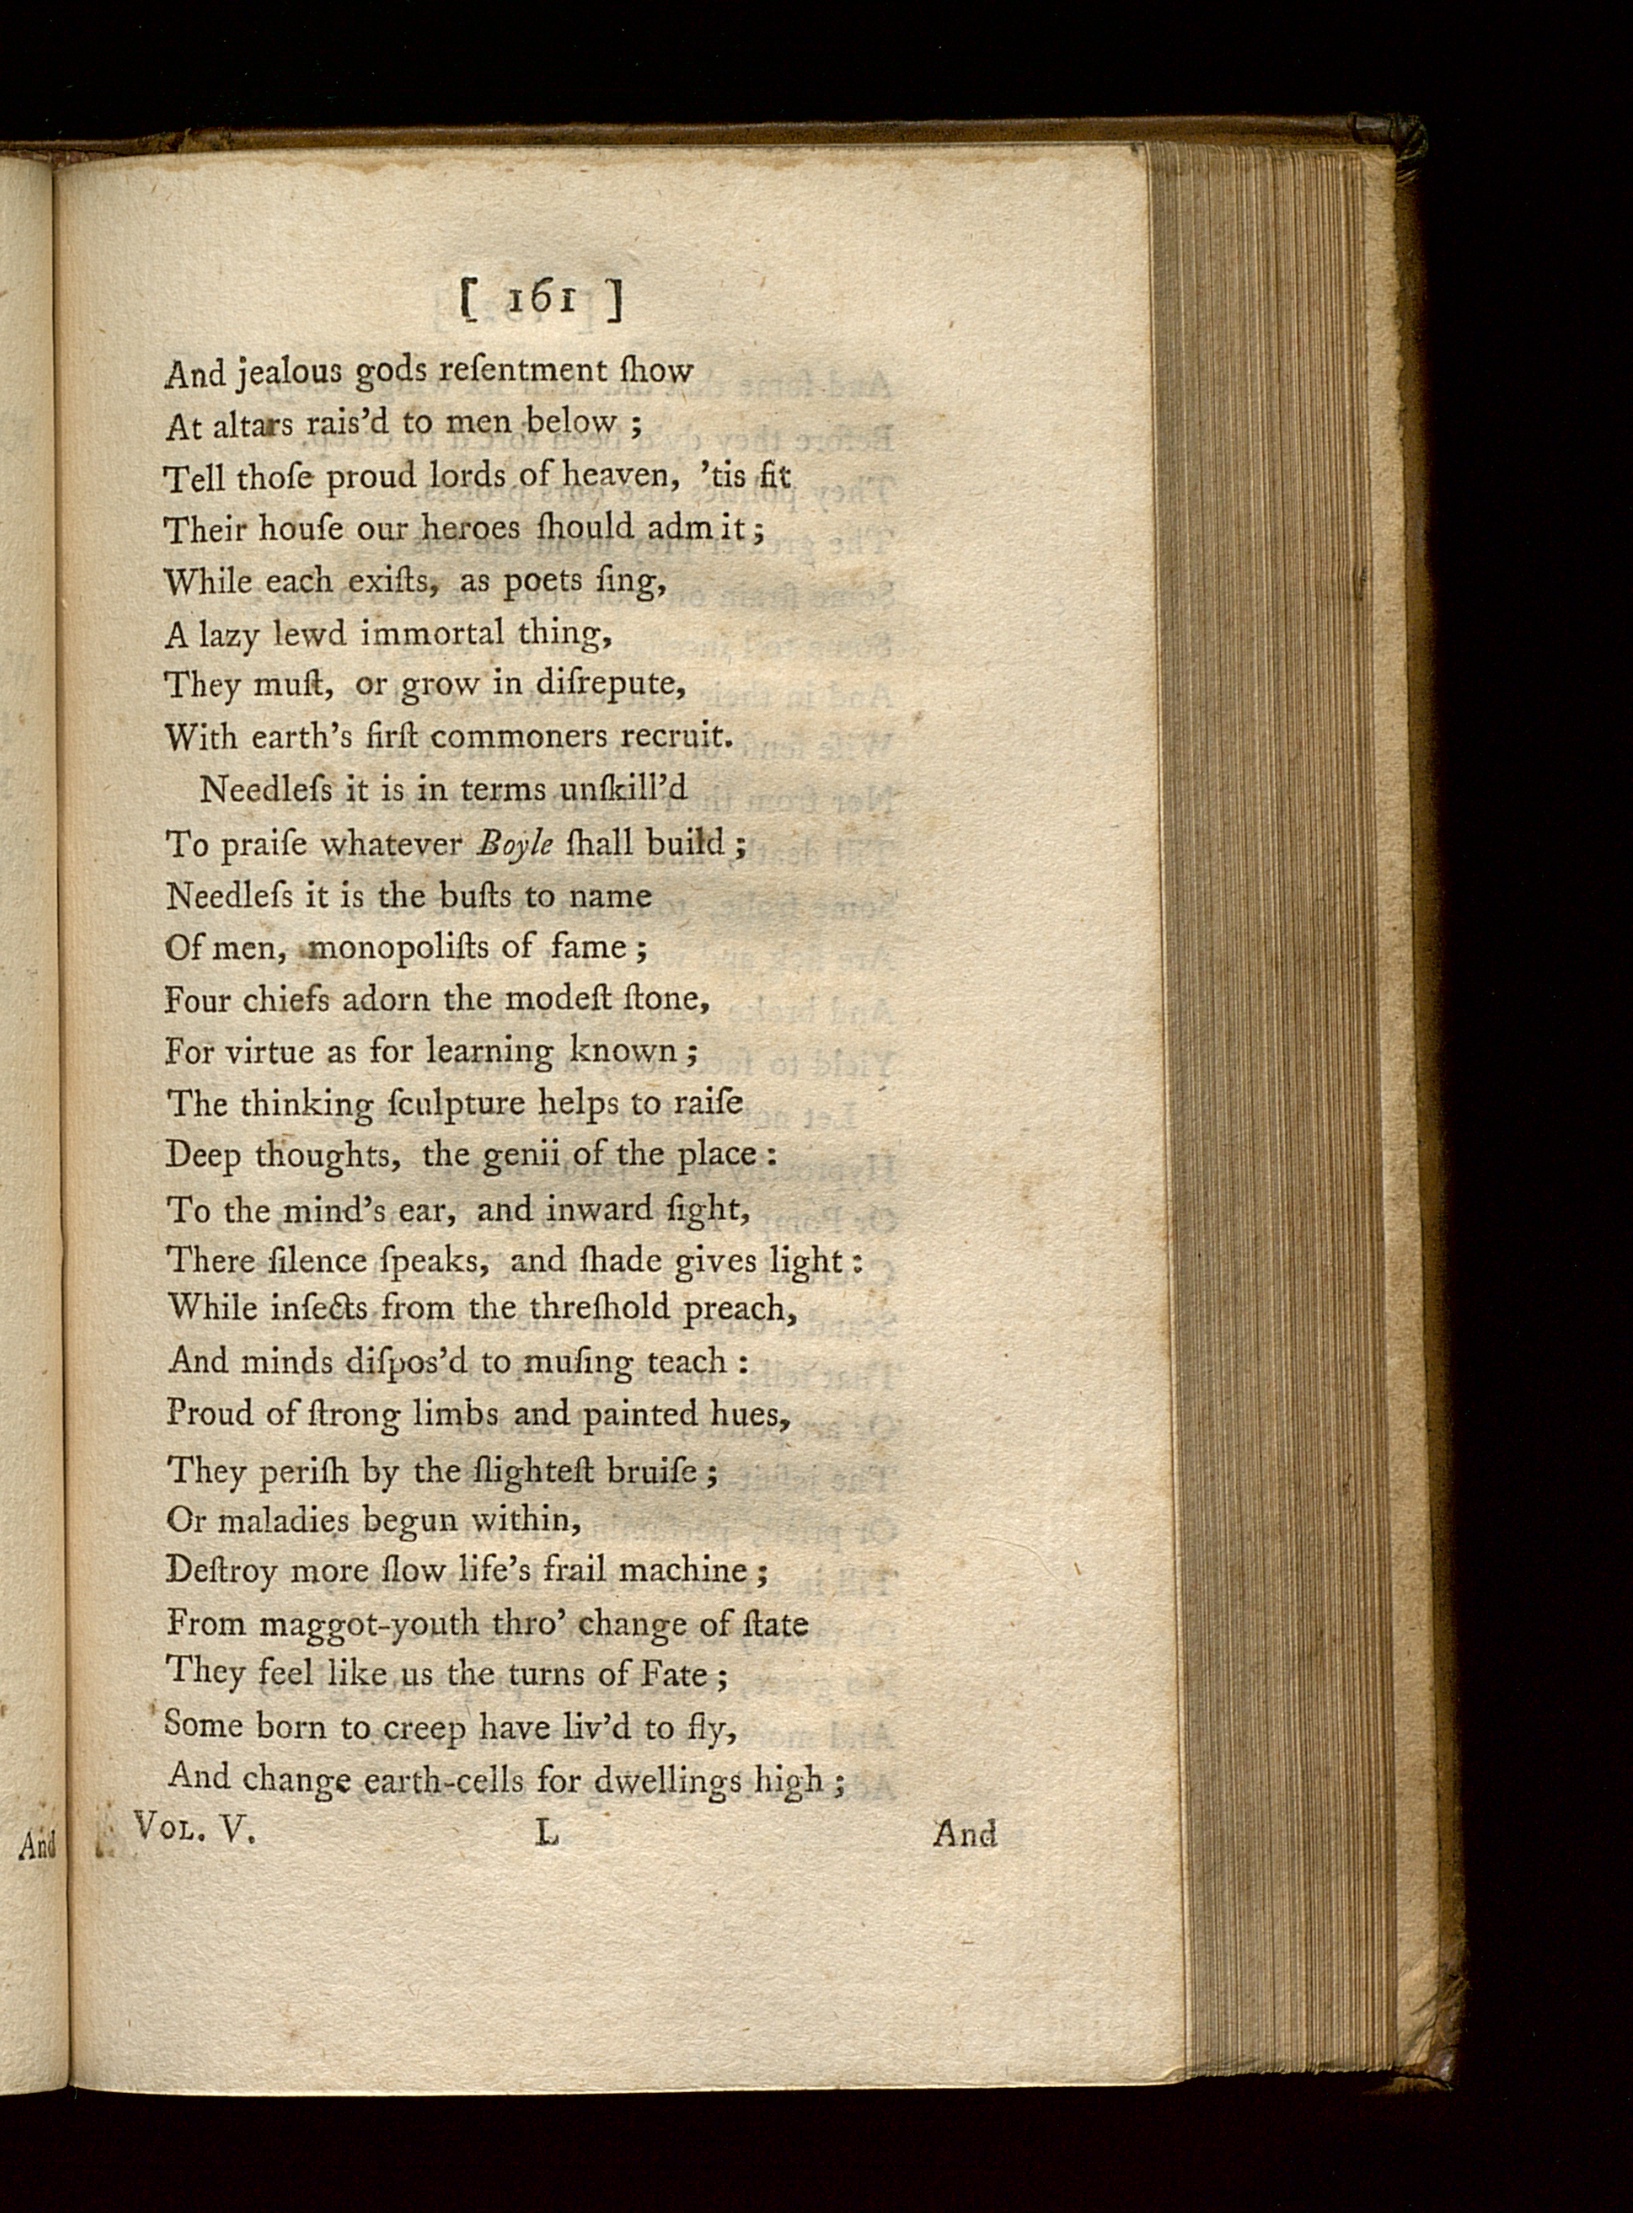 [ 161 ]
And jealous gods reſentment ſhow
At altars rais’d to men below ;
Tell thoſe proud lords of heaven, ’tis fit
Their houſe our heroes ſhould admit ;
While each exiſts, as poets ſing,
A lazy lewd immortal thing,
They muſt, or grow in diſrepute,
With earth’s firſt commoners recruit.
Needleſs it is in terms unſkill’d
To praiſe whatever Boyle ſhall build ;
Needleſs it is the buſts to name
Of men, monopoliſts of fame ;
Four chiefs adorn the modeſt ſtone,
For virtue as for learning known ;
The thinking ſculpture helps to raiſe
Deep thoughts, the genii of the place :
To the mind’s ear, and inward ſight,
There ſilence ſpeaks, and ſhade gives light :
While inſects from the threſhold preach,
And minds diſpos’d to muſing teach :
Proud of ſtrong limbs and painted hues,
They periſh by the ſlighteſt bruiſe ;
Or maladies begun within,
Deſtroy more ſlow life’s frail machine ;
From maggot-youth thro’ change of ſtate
They feel like us the turns of Fate ;
Some born to creep have liv’d to fly,
And change earth-cells for dwellings high ;
VOL. V. L And
And